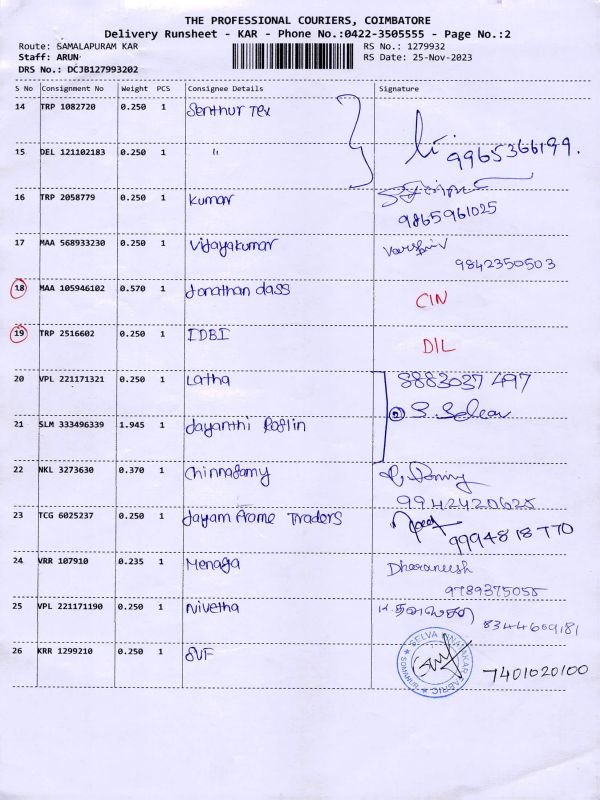 THE PROFESSIONAL COURIERS, COIMBATORE
Delivery Runsheet - KAR - Phone No.:0422-3505555 - Page No.:2
Route: SAMALAPURAM KAR
RS No.: 1279932
Staff: ARUN
RS Date: 25-Nov-2023
DRS No.: DCJB127993202
S No Consignment No Weight PCS Consignee Details Signature
14 TRP 1082720 0.250 1 Senthur Tex
15 DEL 121102183 0.250 1 " 9965366199.
16 TRP 2058779 0.250 1 Kumar
9865961025
17 MAA 568933230 0.250 1 Vijayakumar
9842350503
18 MAA 105946102 0.570 1 Jonathan dass CIN
19 TRP 2516602 0.250 1 IDBI DIL
20 VPL 221171321 0.250 1 Latha 8883037 497
21 SLM 333496339 1.945 1 Jayanthi Roslin
22 NKL 3273630 0.370 1 Chinnasamy
9942420625
23 TCG 6025237 0.250 1 Jayam Frame Traders 9994818770
24 VRR 107910 0.235 1 Menaga Dharaneesh
9789375055
25 VPL 221171190 0.250 1 Nivetha
8344609181
26 KRR 1299210 0.250 1 SVF 7401020100